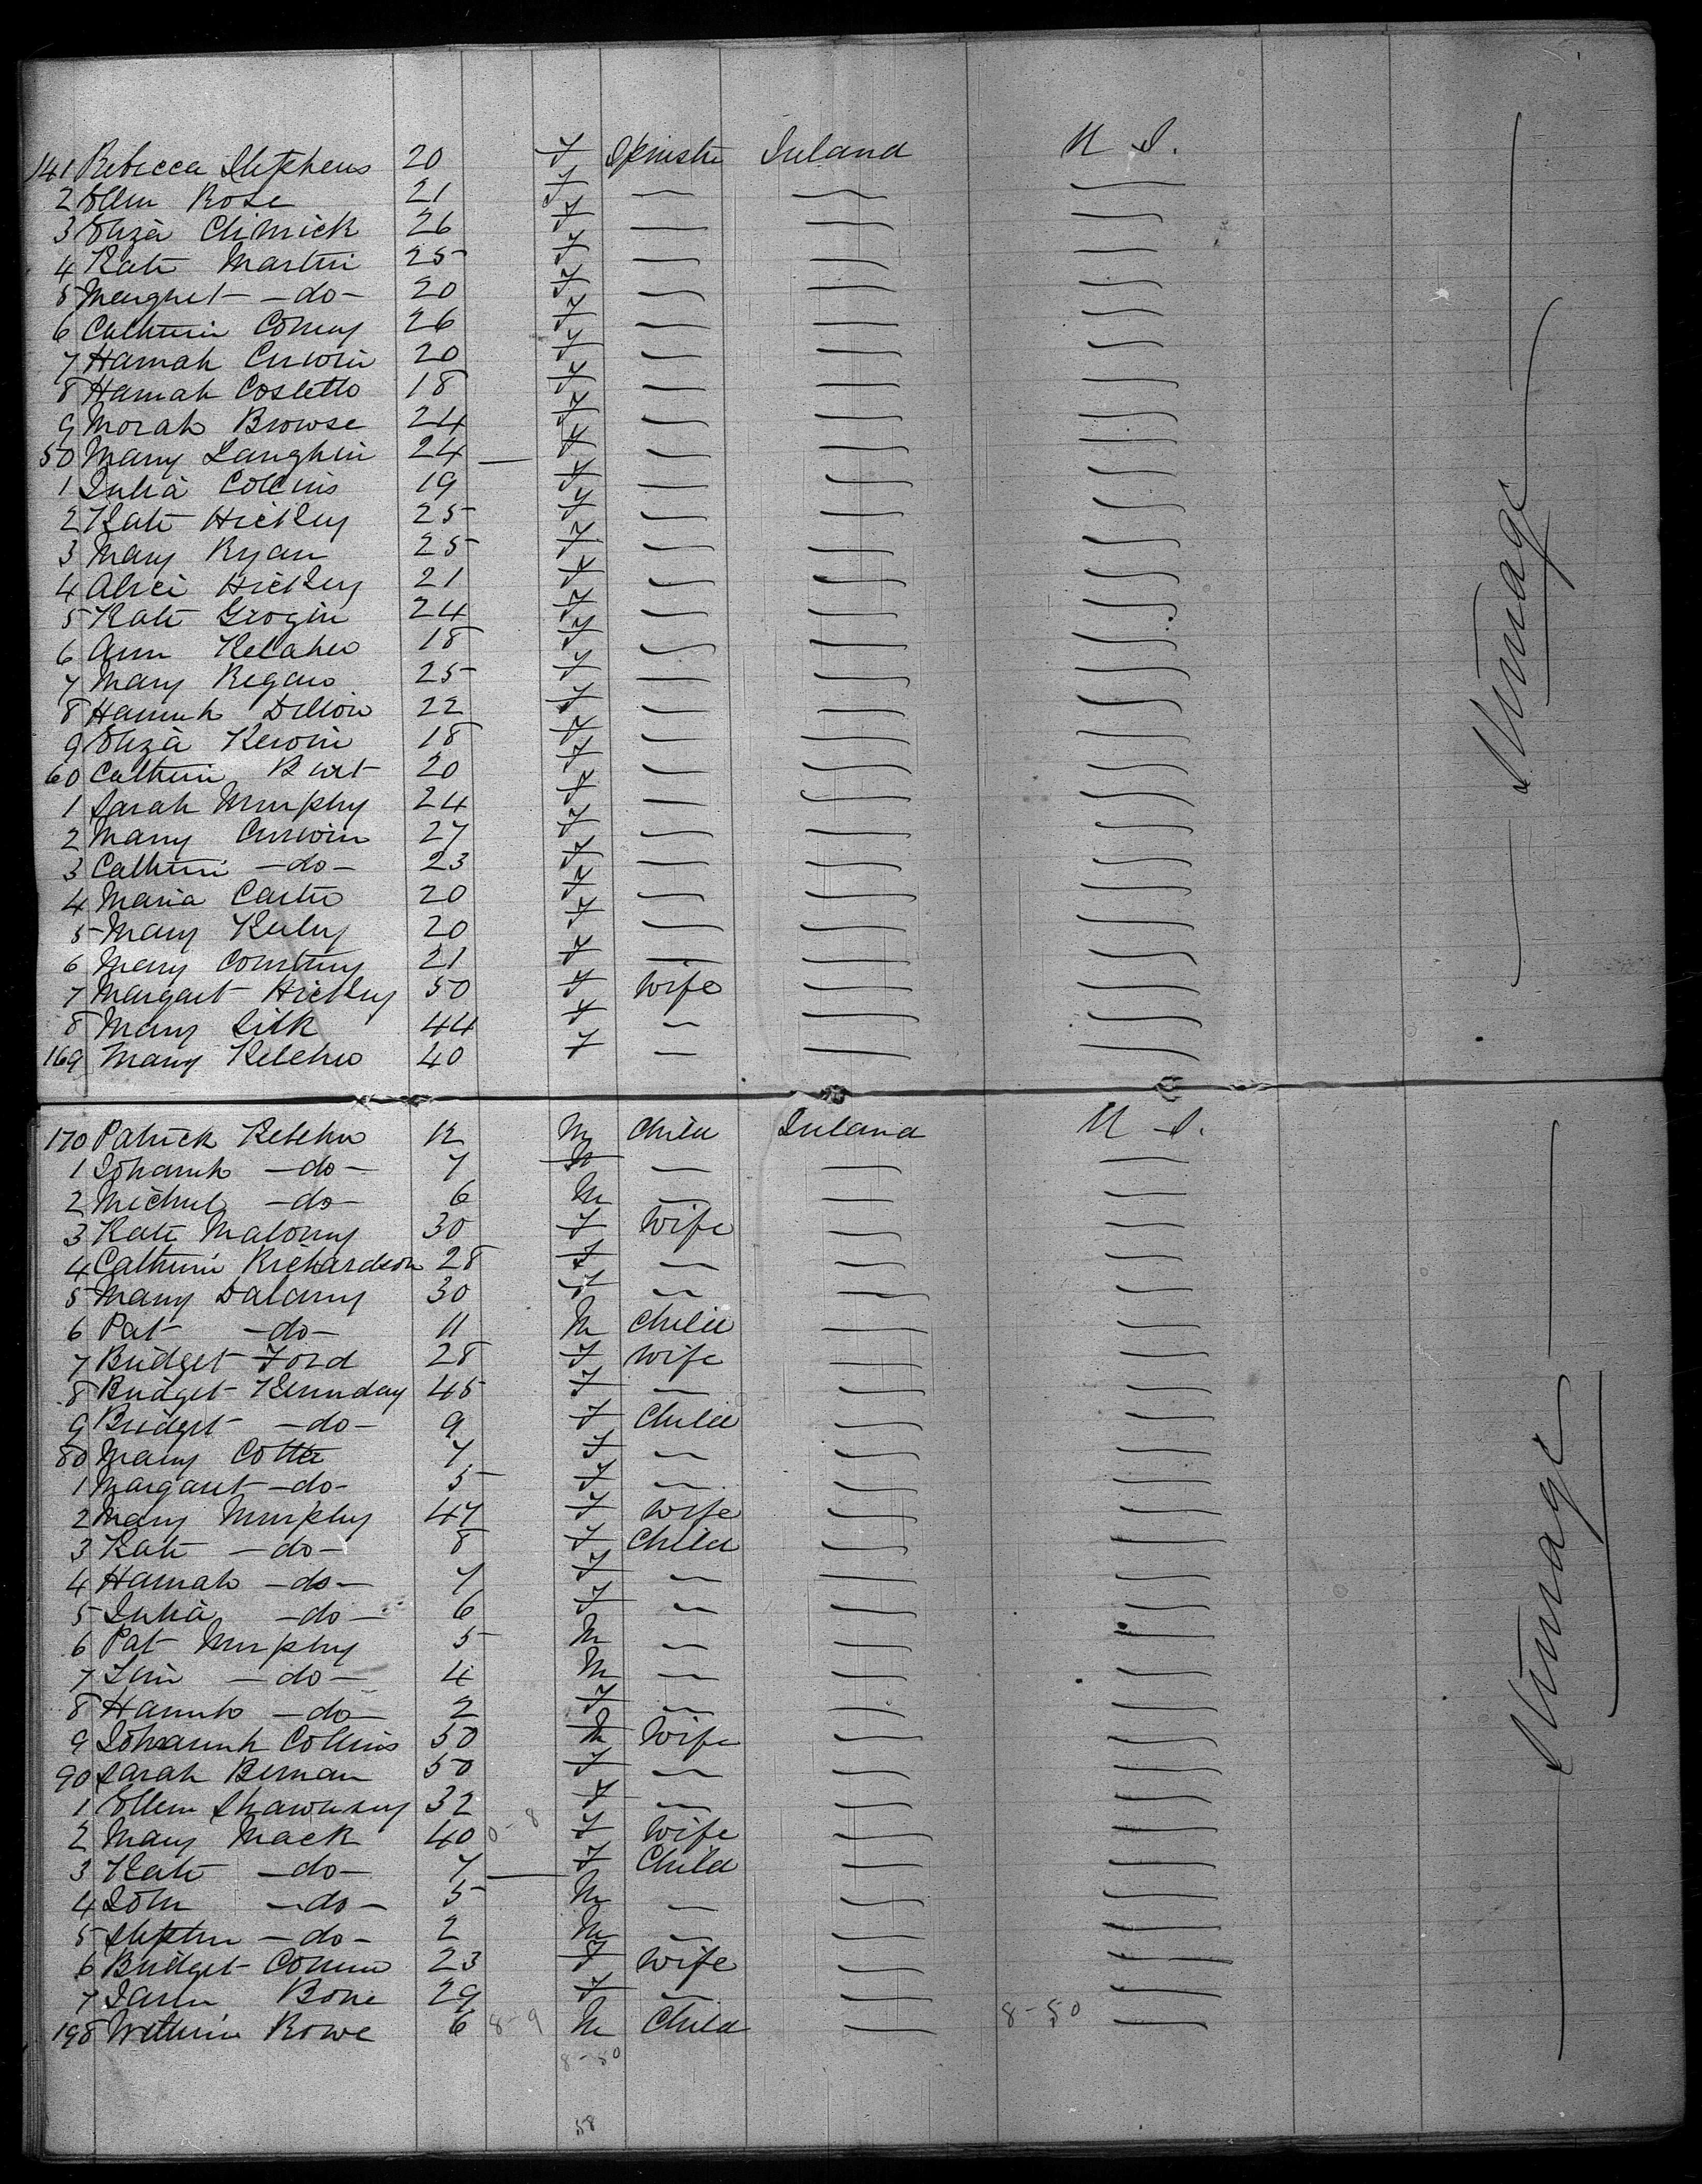 141 Rebecca Stephens 20 F Spinster Ireland U S.
2 Ellen Rose 21 F — — —
3 Eliza Climick 26 F — — —
4 Kate Martin 25 F — — —
5 Margret —do— 20 F — — —
6 Catherin 26 F — — —
7 Hannah Curwin 20 F — — —
8 Hannah Costello 18 F — — —
9 Morah Browse 24 F — — —
50 Mary Laughlin 24 — F — — —
1 Julia Collins 19 F — — —
2 Kate Hickey 25 F — — —
3 Mary Ryan 25 F — — —
4 Alice Hickey 21 F — — —
5 Kate Grogin 24 F — — —
6 Ann Kelaher 18 F — — —
7 Mary Regan 25 F — — —
8 Hannah Dillon 22 F — — —
9 Eliza Kerwin 18 F — — —
60 Catherin Burt 20 F — — —
1 Sarah Murphy 24 F — — —
2 Mary Curwin 27 F — — —
3 Catherin —do— 23 F — — —
4 Maria Carter 20 F — — —
5 Mary 20 F — — —
6 Mary Courtney 21 F — — —
7 Margaret Hickey 50 F Wife — —
8 Mary Silk 44 F — — —
169 Mary Keleher 40 F — — —
— Steerage —
170 Patrick Keleher 12 M Child Ireland U S.
1 Johannah —do— 7 M — — —
2 Michael —do— 6 M — — —
3 Kate Maloney 30 F Wife — —
4 Catherin Richardson 28 F — — —
5 Mary Dalaney 30 F — — —
6 Pat —do— 11 M Child — —
7 Bridget Ford 28 F Wife — —
8 Bridget Kennday 45 F — — —
9 Bridget —do— 9 F Child — —
80 Mary Cotter 7 F — — —
1 Margaret —do— 5 F — — —
2 Mary Murphy 47 F Wife — —
3 Kate —do— 8 F Child — —
4 Hannah —do— 7 F — — —
5 Julia —do— 6 F — — —
6 Pat Murphy 5 M — — —
7 Jim —do— 4 M — — —
8 Hannah —do— 2 F — — —
9 Johannah Collins 50 M Wife — —
90 Sarah Bernan 50 F — — —
1 Ellen Shawnesy 32 F — — —
2 Mary Mack 40 0-8 F Wife — —
3 Kate —do— 7 — F Child — —
4 John —do— 5 M — — —
5 Stephen —do— 2 M — — —
6 Bridget 23 F Wife — —
7 29 F — — —
198 Rowe 6 8-9 M Child — 8-50 —
8-80
58
— Steerage —